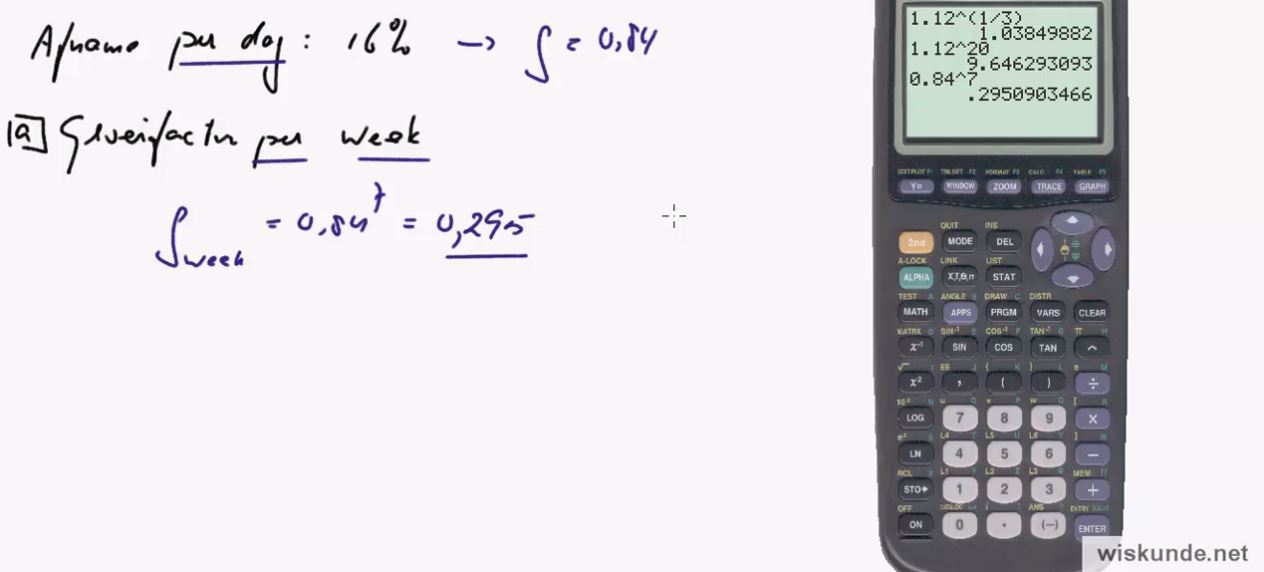 Afname per dag: 16% → g = 0,84
a Groeifactor per week
g week = 0,84^7 = 0,295
1.12^(1/3)
1.03849882
1.12^20
9.646293093
0.84^7
.2950903466
STAT PLOT F1 TBLSET F2 FORMAT F3 CALC F4 TABLE F5
Y= WINDOW ZOOM TRACE GRAPH
QUIT INS
2nd MODE DEL
A-LOCK LINK LIST
ALPHA X,T,θ,n STAT
TEST A ANGLE B DRAW C DISTR
MATH APPS PRGM VARS CLEAR
MATRX D SIN⁻¹ E COS⁻¹ F TAN⁻¹ G π H
x⁻¹ SIN COS TAN ^
√ I EE J { K } L e M
x² , ( ) ÷
10ˣ N u O v P w Q [ R
LOG 7 8 9 ×
eˣ S L4 T L5 U L6 V ] W
LN 4 5 6 −
RCL X L1 Y L2 Z L3 θ MEM "
STO▸ 1 2 3 +
OFF CATALOG ANS ? ENTRY SOLVE
ON 0 . (−) ENTER
wiskunde.net